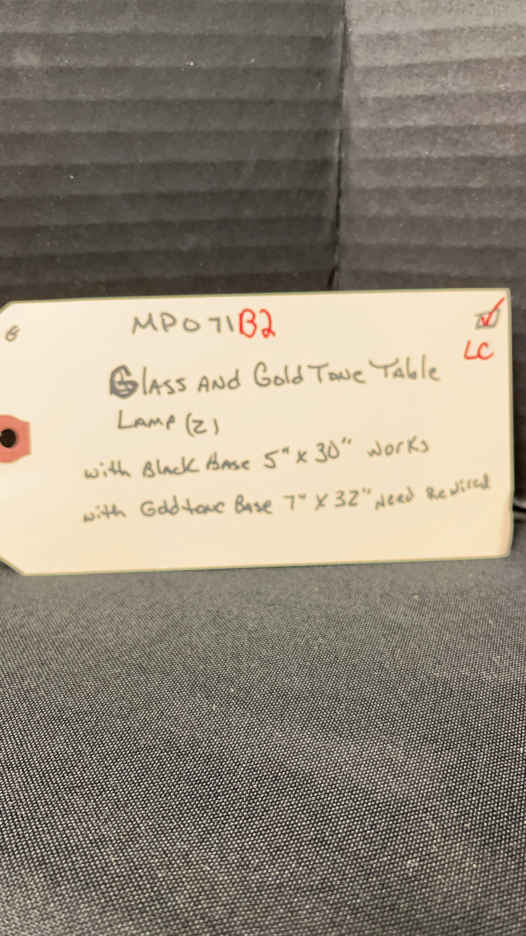 G
MP071B2
LC
Glass And Gold Tone Table
Lamp (2)
with Black Base 5" x 30" works
with Goldtone Base 7" x 32" Need Rewired